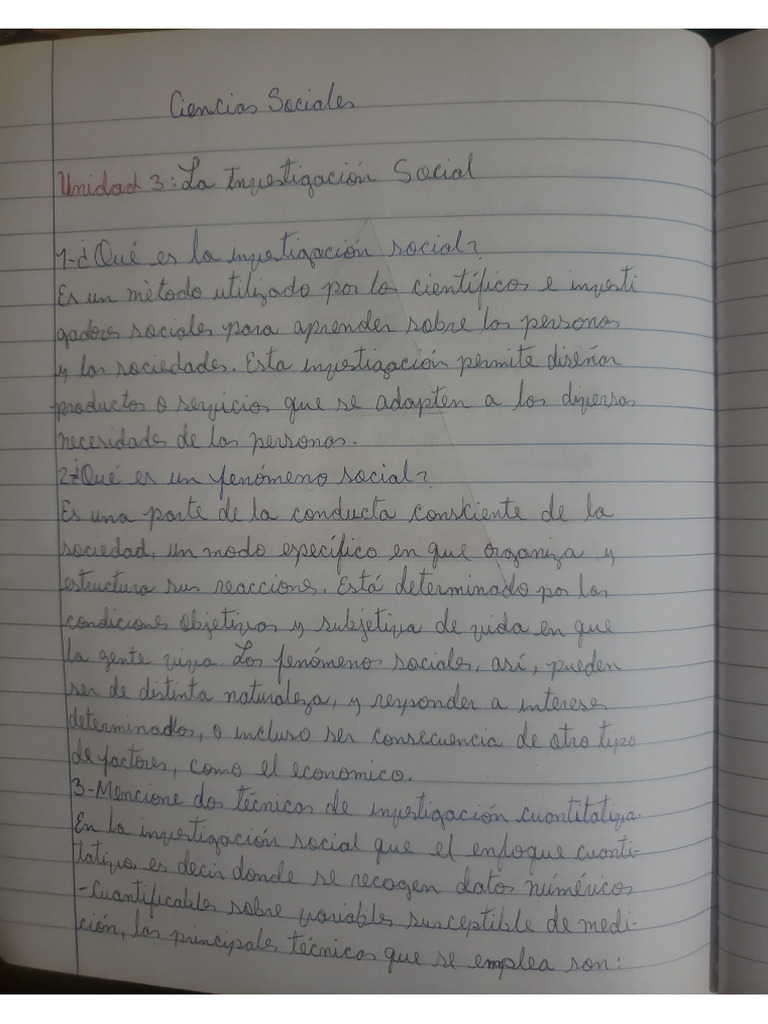 Ciencias Sociales
Unidad 3: La Investigación Social
1-¿Qué es la investigación social?
Es un mètodo utilizado por los científicos e investi
gadores sociales para aprender sobre las personas
y las sociedades. Esta investigación permite diseñar
productos o servicios que se adapten a los diversas
necesidades de las personas.
2-¿Qué es un fenómeno social?
Es una parte de la conducta consciente de la
sociedad, un modo específico en que organiza y
estructura sus reacciones. Está determinado por las
condiciones objetivas y subjetiva de vida en que
la gente viva. Los fenómenos sociales, así, pueden
ser de distinta naturaleza, y responder a intereses
determinados, o incluso ser consecuencia de otro tipo
de factores, como el economico.
3-Mencione dos técnicas de investigación cuantitativa.
En la investigación social que el enfoque cuanti-
tativo, es decir donde se recogen datos numéricos
-Cuantificables sobre variables susceptible de medi-
ción, las principales técnicas que se emplea son: